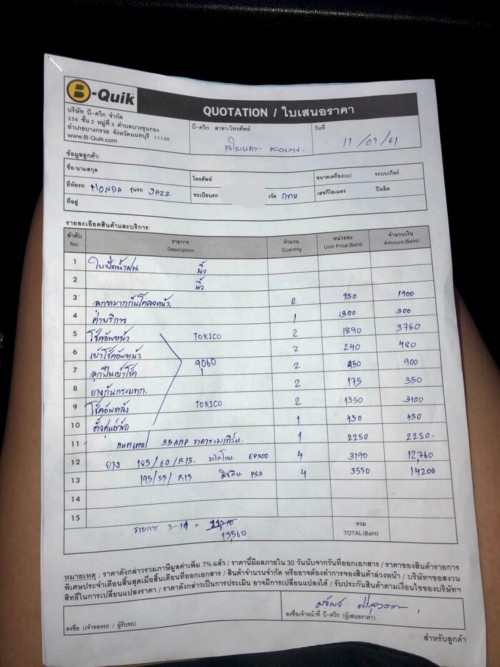 B-Quik
บริษัท บี-ควิก จำกัด
256 ชั้น 2 หมู่ที่ 3 ตำบลบางขุนกอง
อำเภอบางกรวย จังหวัดนนทบุรี 11130
www.B-Quik.com
QUOTATION / ใบเสนอราคา
บี-ควิก สาขา/โทรศัพท์
วันที่
11 / 09 / 61
ข้อมูลลูกค้า:
ชื่อ-นามสกุล
โทรศัพท์
ขนาดเครื่อง(cc) ระบบเกียร์
ยี่ห้อรถ HONDA รุ่นรถ JAZZ
ทะเบียนรถ
จว. กทม
เลขกิโลเมตร ปีผลิต
ที่อยู่
รายละเอียดสินค้าและบริการ:
ลำดับ No. รายการ Description จำนวน Quantity หน่วยละ Unit Price(Baht) จำนวนเงิน Amount(Baht)
1 ใบปัดน้ำฝน นิ้ว
2 นิ้ว
3 ลูกหมากกันโคลงหน้า 2
4 ค่าบริการ 1 300 300
5 โช๊คอัพหน้า TOKICO 2 1890 3780
6 เบ้าโช๊คอัพหน้า 2 240 480
7 ลูกปืนเบ้าโช๊ค 9060 2 450 900
8 ยางกันกระแทก 2 175 350
9 โช๊คอัพหลัง TOKICO 2 1550 3100
10 ตั้งศูนย์ล้อ 1 450 450
11 แบตเตอรี่ 1 2250 2250.-
12 ยาง 185/60/R15 4 3190 12,760
13 195/55/R15 4 3550 14200
14
15
รายการ 3-11 =
13,560
รวม
TOTAL(Baht)
หมายเหตุ : ราคาดังกล่าวรวมภาษีมูลค่าเพิ่ม 7% แล้ว / ราคานี้มีผลภายใน 30 วันนับจากวันที่ออกเอกสาร / ราคาของสินค้ารายการ
พิเศษประจำเดือนสิ้นสุดเมื่อสิ้นเดือนที่ออกเอกสาร / สินค้าจำนวนจำกัด หรืออาจต้องทำการจองสินค้าล่วงหน้า / บริษัทฯขอสงวน
สิทธิ์ในการเปลี่ยนแปลงราคา / ราคาดังกล่าวเป็นการประเมิน อาจมีการเปลี่ยนแปลงได้ / รับประกันสินค้าตามเงื่อนไขของบริษัทฯ
ลงชื่อ (เจ้าของรถ / ผู้รับรถ)
ลงชื่อเจ้าหน้าที่ บี-ควิก (ผู้เสนอราคา)
สำหรับลูกค้า